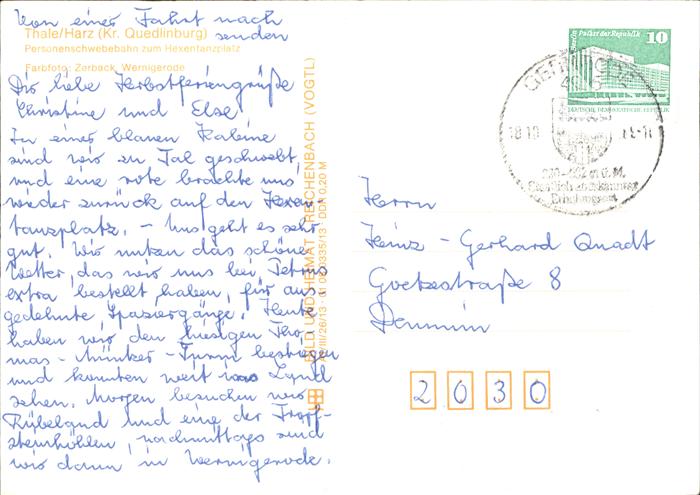 Von einer Fahrt nach
Thale/Harz (Kr. Quedlinburg)
senden
Personenschwebebahn zum Hexentanzplatz
Farbfoto: Zerback, Wernigerode
Dir liebe Herbstferiengrüße
Christine und Else!
In einer blauen Kabine
sind wir zu Tal geschwebt,
und eine rote brachte uns
wieder zurück auf den Hexen
tanzplatz. – Uns geht es sehr
gut. Wir nutzen das schöne
Wetter, das wir uns bei Petrus
extra bestellt haben, für aus
gedehnte Spaziergänge. Heute
haben wir den hiesigen Tho-
mas-Münker-Turm bestiegen
und konnten weit ins Land
sehen. Morgen besuchen wir
Rübeland und eine der Tropf-
steinhöhlen, nachmittags sind
wir dann in Wernigerode.
BILD UND HEIMAT REICHENBACH (VOGTL)
Palast der Republik
10
DEUTSCHE DEMOKRATISCHE REPUBLIK
18.10
Staatlich anerkannter
Erholungsort
Herrn
Heinz-Gerhard Quadt
Goetzestraße 8
Demmin
2030